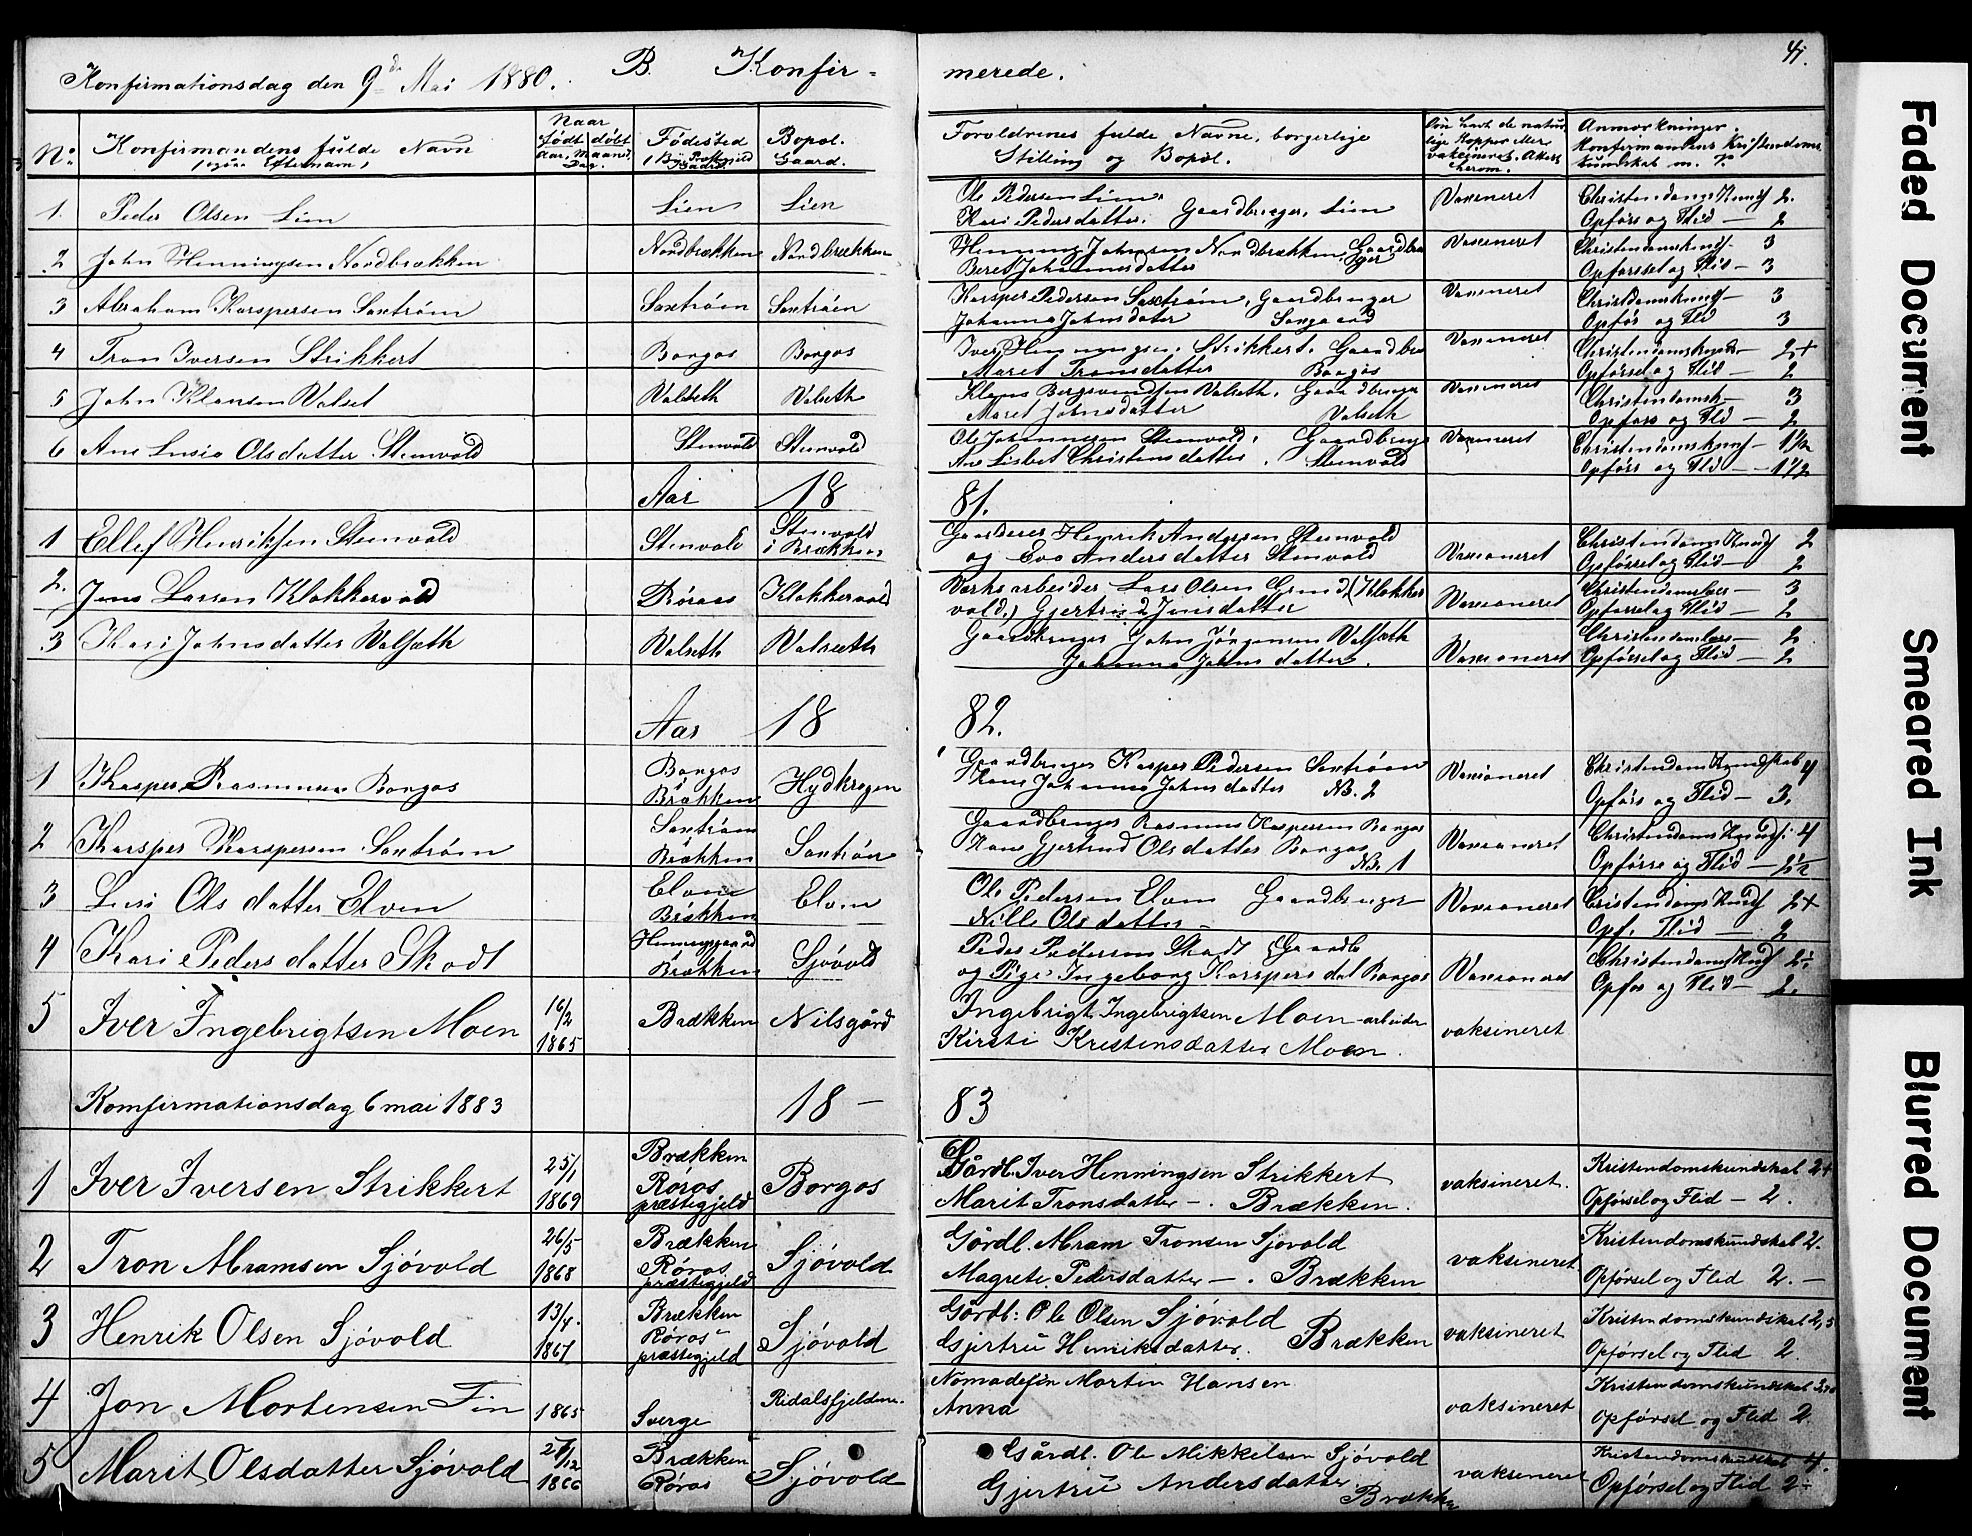 41.
Konfirmationsdag den 9de Mai 1880. B. Konfir-
merede.
No. Konfirmandens fulde Navn (ogsaa Efternavn)
Naar født døbt Aar, Maaned, Dag.
Fødested (By, Præstegjeld Gaard)
Bopæl. Gaard.
Forældrenes fulde Navne, borgerlige
Stilling og Bopæl.
Anmærkninger.
Konfirmandens Kristendoms
kundskab m. v.
1. Peder Olsen Lien Lien Lien
Ole Pedersen Lien
Kari Pedersdatter. Gaardbruger, Lien
Vaxeneret
Christendoms Kundsk 2.
Opførs og Flid — 2
2 John Henningsen Nordbrækken Nordbrækken Nordbrækken
Henning Johnsen Nordbrækken, Gaardbruger
Beret Johannesdatter
Vaxeneret
Christendomskundsk — 3
Opførssel og Flid — 3
3 Abraham Karspersen Saxtrøm Saxtrøm Saxtrøen
Karsper Pedersen Saxtrøm, Gaardbruger
Johanna Johnsdater
Vaxeneret
Christdomskundsk — 3
Opførs og Flid 3
4 Tron Iversen Strikkert Borgos Borgos
Iver Henningsen Strikkert. Gaardbru
Maret Tronsdatter Borgos
Vaxeneret
Christendomskunds — 2+
Opførsel og Flid — 2
5 John Klausen Valset Valseth Valseth
Klaus Bergsvendsen Valseth. Gaardbruger
Maret Johnsdatter Valseth
Vaxeneret
Christendomsk — 3
Opførs og Flid — 2
6 Ane Lusia Olsdatter Stenvold Stenvold Stenvold
Ole Johannesen Stenvold, Gaardbruge
Ane Lisbet Christensdatter, Stenvold
Vaxeneret
Christendomskundsk — 1 1/2
Opførs og Flid — 1 1/2
Aar 18 81.
1 Ellef Henriksen Stenvold Stenvold Stenvold i Brækken
Gaardeier Henrik Andersen Stenvold
og Eva Andersdatter Stenvold
Vaxoneret
Christendoms Kundsk 2
Opførsel og Flid — 2
2. Jens Larsen Klokkervold Røraas Klokkervold
Værksarbeider Lars Olsen Grind (Klokker
vold) Gjertrud Jensdatter
Vaxoneret
Christendomskus — 3
Opførsel og Flid — 2
3 Kari Johnsdatter Valsæth Valseth Valsæth
Gaardbruger John Jørgensen Valsæth
Johanna Johnsdatter.
Vaxoneret
Christendomkus — 2
Opførsel og Flid — 2
Aar 18 82.
1 Kasper Rasmusen Borgos Borgos Brækken Hydkrogen
Gaardbruger Kasper Pedersen Saxtrøm
Kone Johanna Johnsdatter NB. 2
Vaxoneret
Christendoms Kundskab 4
Opførs og Flid — 3.
2 Karsper Karspersen Saxtrøm Saxtrøm Brækken Saxtrøen
Gaardbruger Rasmus Kaspersen Borgos
Kone Gjertrud Olsdatter Borgos NB. 1
Vaxoneret
Christendoms Kundsk: 4
Opførse og Flid — 2 1/2
3 Lusi Olsdatter Elven Elven Brækken Elven
Ole Pedersen Elven Gaardbruger
Nille Olsdatter —
Vaxoneret
Cristendoms Kundsk 2+
Opf. Flid — 2
4 Kari Pedersdatter Skodt Henningsgaard Brækken Sjøvold
Peder Pedersen Skodt (Gaardb
og Pige Ingeborg Karspersdat Borgos
Vaxoneret
Christendoms Kundsk 2÷
Opførs og Flid — 2.
5 Iver Ingebrigtsen Moen 16/2 1865 Brækken Nilsgård
Ingebrigt Ingebrigtsen Moen - arbeider
Kirsti Kristensdatter Moen.
vaksineret
Komfirmationsdag 6 mai 1883 18 — 83
1 Iver Iversen Strikkert 25/1 1869 Brækken Røros præstegjeld Borgos
Gårdb. Iver Henningsen Strikkert
Marit Tronsdatter — . Brækken.
vaksineret.
Kristendomskundskab 2+
Opførsel og Flid — 2.
2 Tron Abramsen Sjøvold 26/5 1868 Brækken Røros præstegjeld Sjøvold
Gårdb. Abram Tronsen Sjøvold
Magrete Pedersdatter — . Brækken
vaksineret
Kristendomskundskab 2.
Opførsel og Flid 2. —
3 Henrik Olsen Sjøvold 13/4. 1867 Brækken Røros- præstegjeld Sjøvold
Gårdb: Ole Olsen Sjøvold
Gjertru Henriksdatter. Brækken
vaksineret
Kristendomskundskab 2,5
Opførsel og Flid 2.
4 Jon Mortensen Fin 1865 Sverge Ridalsfjeldene.
Nomadefin Morten Hansen
Anna
vaksineret
Kristendomskundskab
Opførsel og Flid 2.
5 Marit Olsdatter Sjøvold 1866 Brækken Røros Sjøvold
Gårdb. Ole Mikkelsen Sjøvold
Gjertru Andersdatter Brække
vaksineret
Kristendomskundskab 4.
Opførsel og Flid 2÷
Faded Document
Smeared Ink
Blurred Document